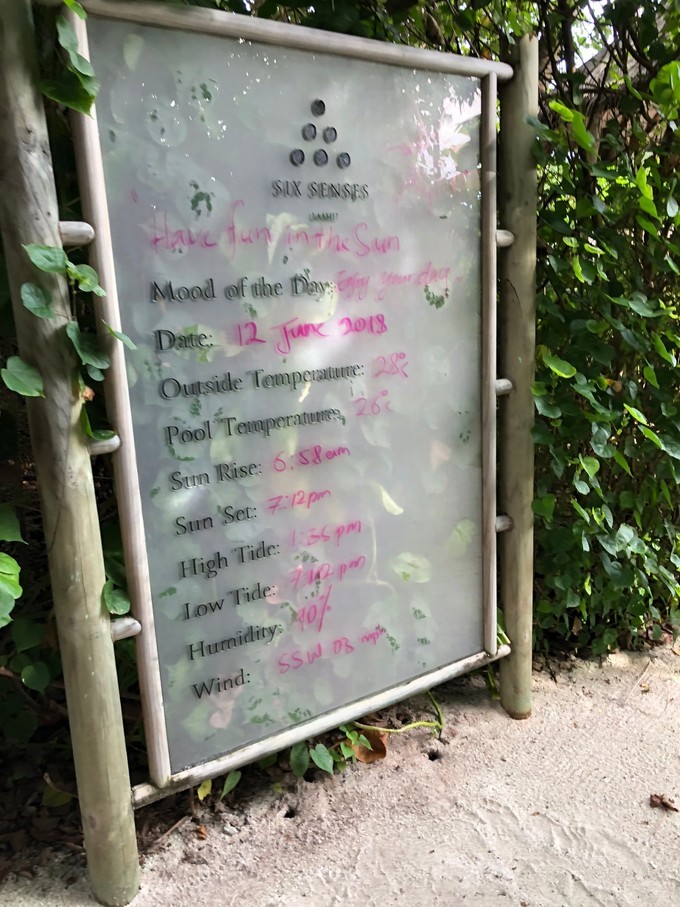 SIX SENSES
LAAMU
Have fun in the Sun
Mood of the Day: Enjoy your
Date: 12 June 2018
Outside Temperature: 28°c
Pool Temperature: 26°c
Sun Rise: 6:58am
Sun Set: 7:12pm
High Tide: 1:36 pm
Low Tide: 7:12 pm
Humidity:
Wind: SSW 03 mph